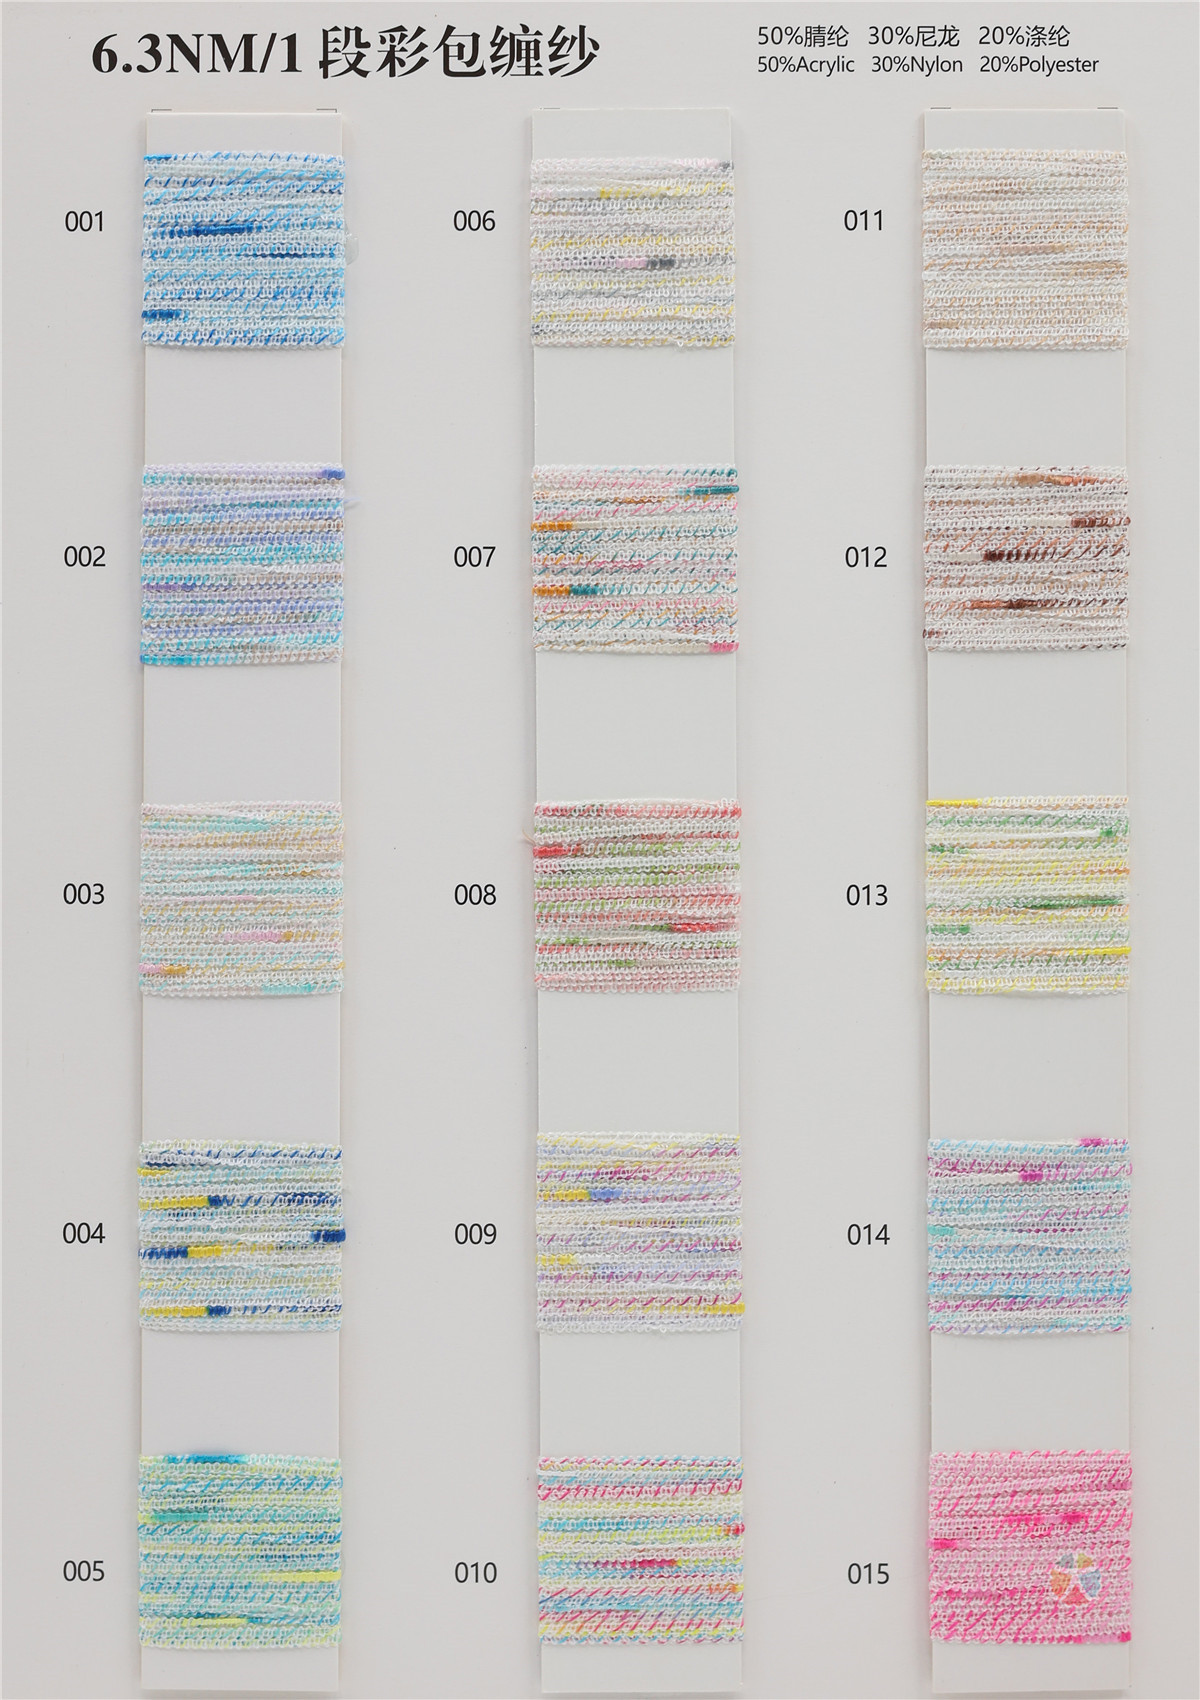 6.3NM/1 段彩包缠纱
50%腈纶 30%尼龙 20%涤纶
50%Acrylic 30%Nylon 20%Polyester
001
006
011
002
007
012
003
008
013
004
009
014
005
010
015